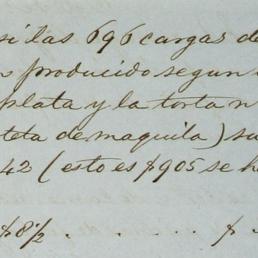 si las 696 cargas de
producido segun
plata y la torta n
teta de maquila) su
42 (esto es $905 se h
$8½ . . . . . $